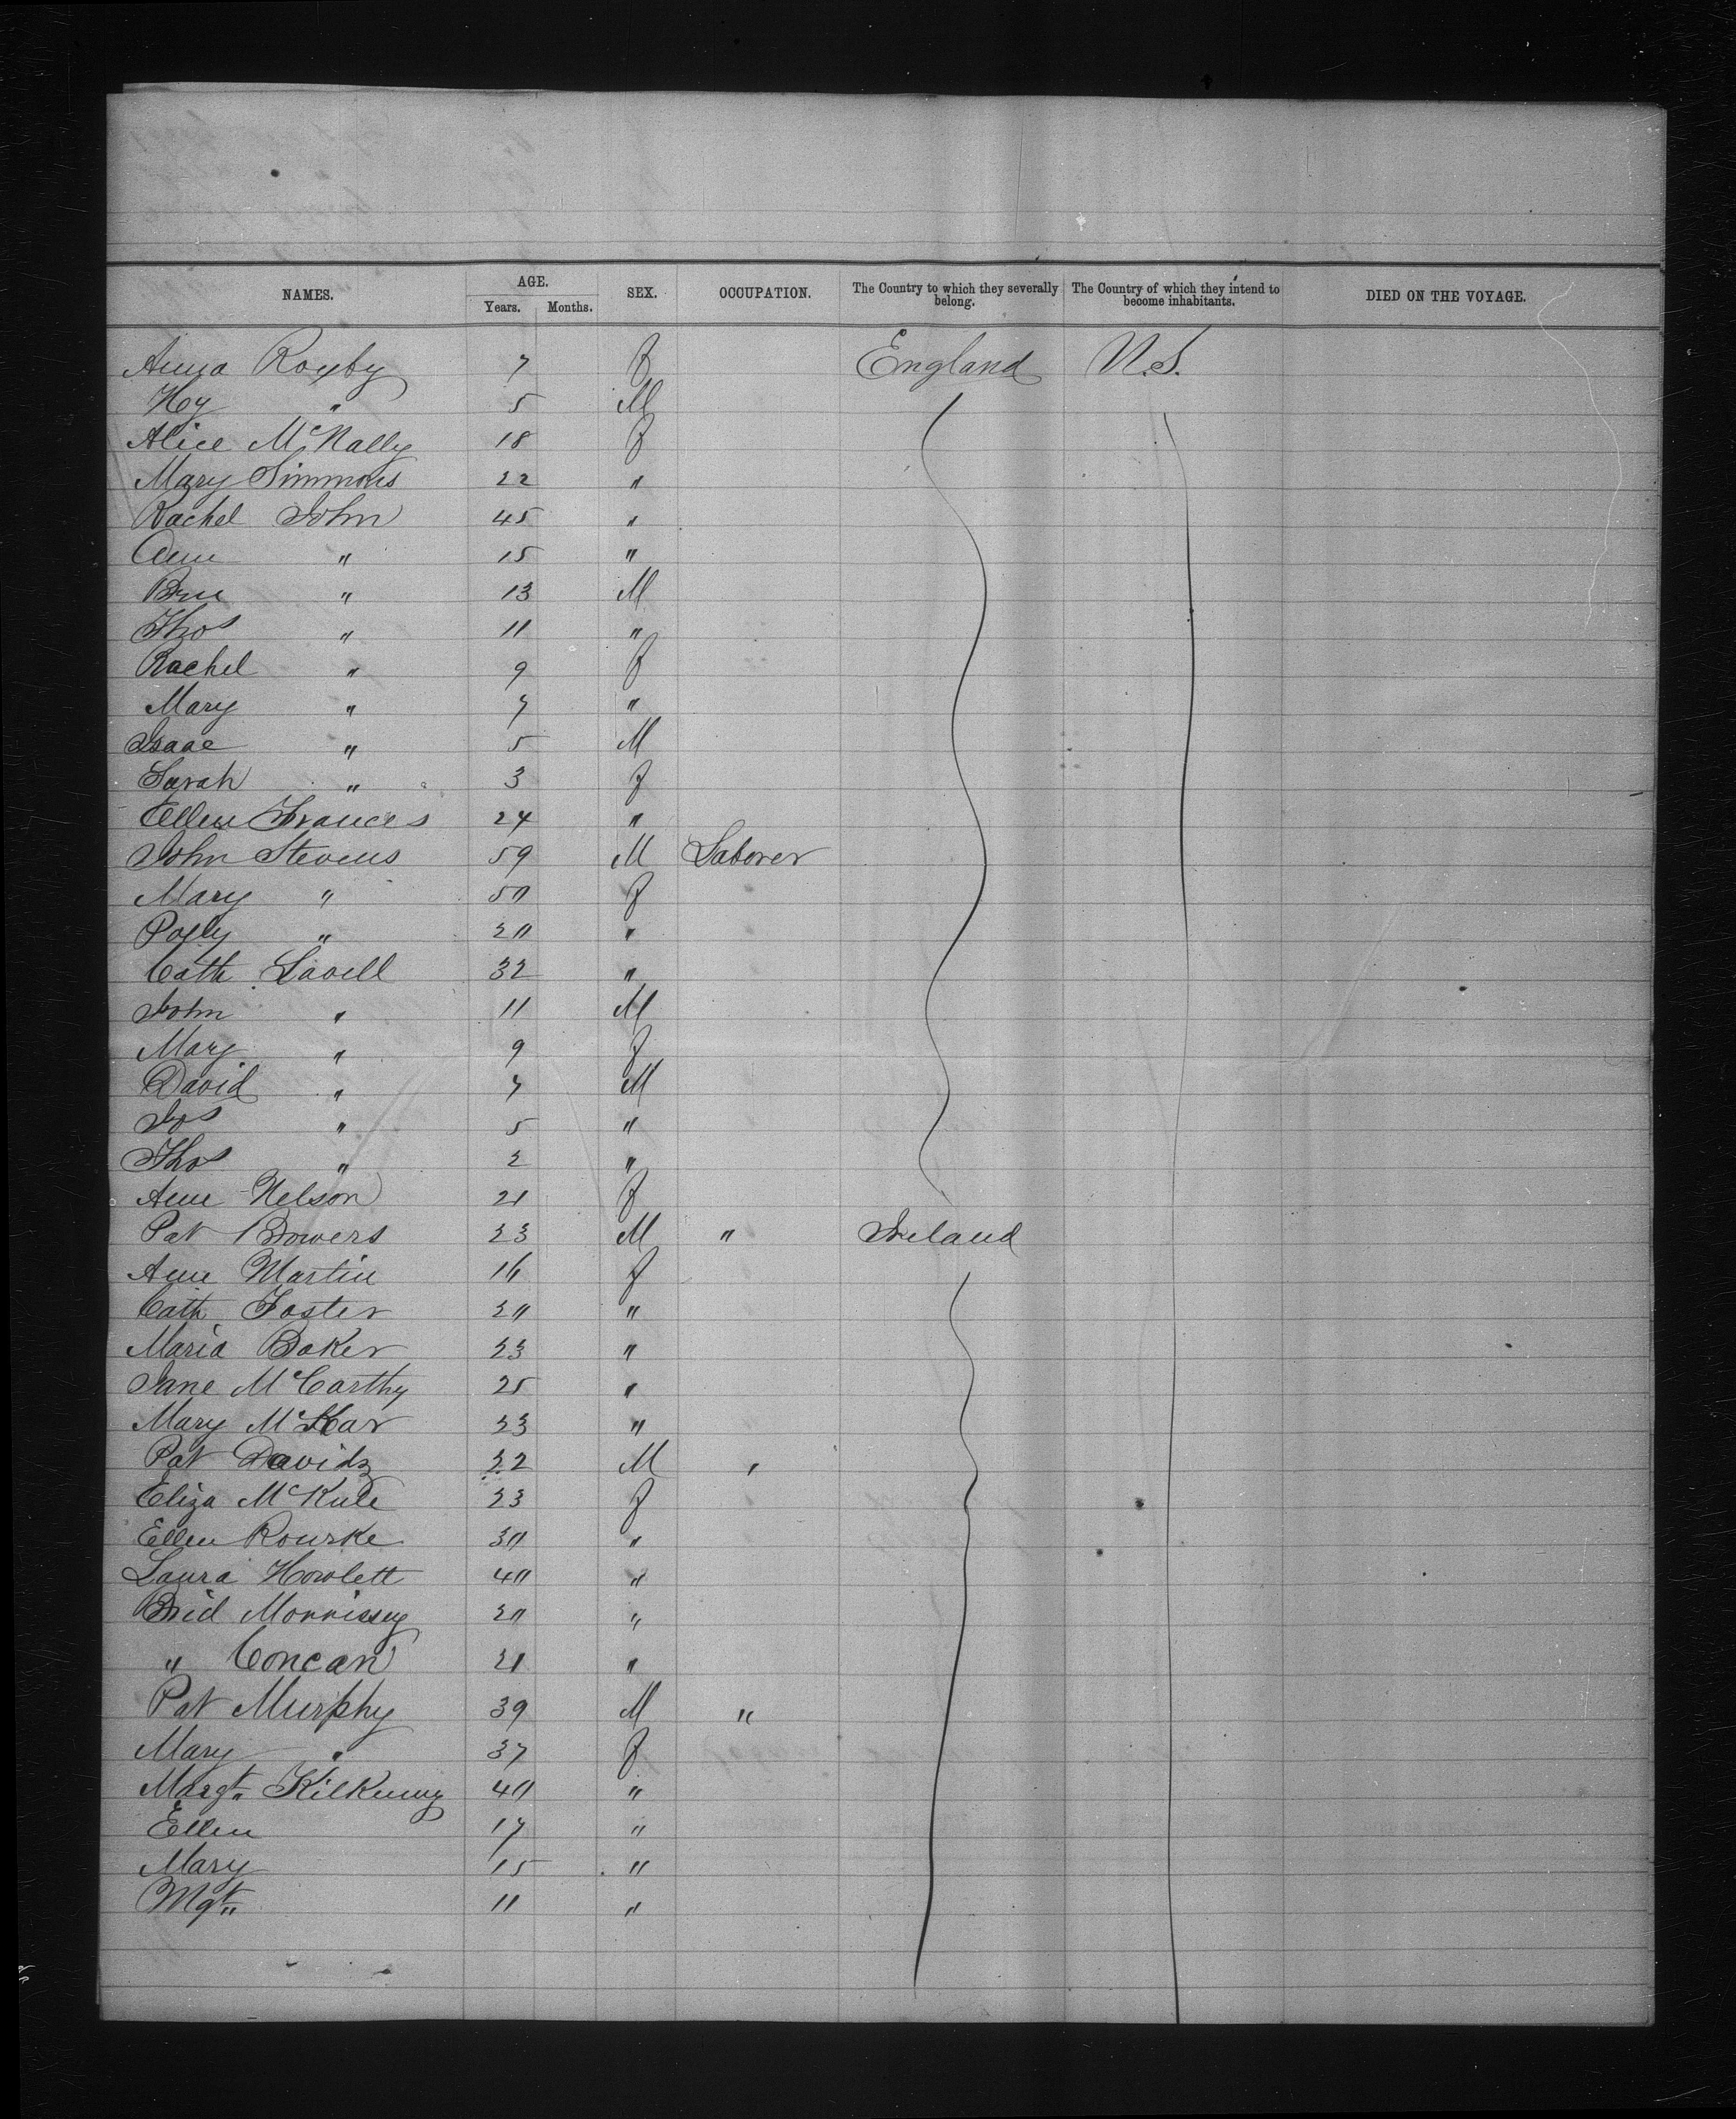 NAMES. AGE. SEX. OCCUPATION. The Country to which they severally belong. The Country of which they intend to become inhabitants. DIED ON THE VOYAGE.
Years. Months.
Anna Roxby 7 F England U.S.
Hy " 5 M
Alice McNally 18 F
Mary Simmons 22 "
Rachel John 45 "
Ann " 15 "
Ben " 13 M
Thos " 11 "
Rachel " 9 F
Mary " 7 "
Isaac " 5 M
Sarah " 3 F
Ellen Frances 24 "
John Stevens 59 M Laborer
Mary " 50 F
Polly " 20 "
Cath Lavell 32 "
John " 11 M
Mary " 9 F
David " 7 M
Jos " 5 "
Thos " 2 "
Ann Nelson 21 F
Pat Bowers 23 M " Ireland
Ann Martin 16 F
Cath Foster 20 "
Maria Baker 23 "
Jane McCarthy 25 "
Mary 23 "
Pat Davids 22 M "
Eliza 23 F
Ellen Rourke 30 "
Laura Howlett 40 "
Brid Morrissey 20 "
" Concan 21 "
Pat Murphy 39 M "
Mary " 37 F
Margt. Kilkenny 40 "
Ellen 17 "
Mary 15 "
Mgt. 11 "